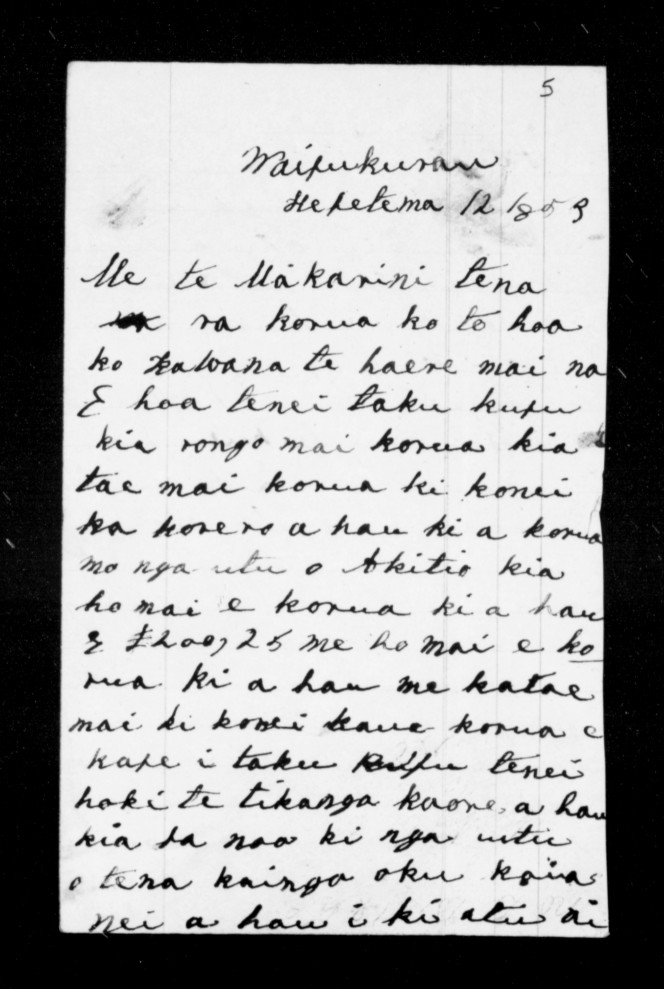 5
Waipukurau
Hepetema 12 1859
Me te Makarini tena
ra korua ko to hoa
ko Kawana te haere mai na
E hoa tenei taku kupu
kia rongo mai korua kia
tae mai korua ki konei
ka korero a hau ki a korua
mo nga utu o Akitio kia
ho mai e korua ki a hau
£200, 25 me ho mai e ko
rua ki a hau me ka tae
mai ki konei kaua korua e
kape i taku kupu tenei
hoki te tikanga kaore, a hau
kia ta naa ki nga utu
o tena kainga oku koia
nei a hau i ki atu ai